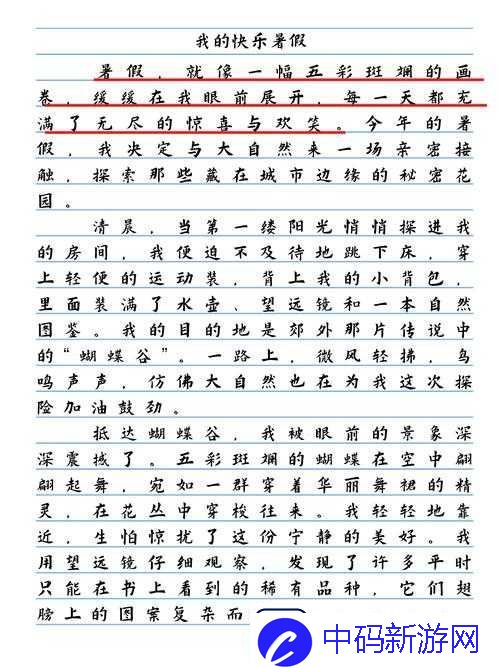 我的快乐暑假
暑假，就像一幅五彩斑斓的画
卷，缓缓在我眼前展开，每一天都充
满了无尽的惊喜与欢笑。今年的暑
假，我决定与大自然来一场亲密接
触，探索那些藏在城市边缘的秘密花
园。
清晨，当第一缕阳光悄悄探进我
的房间，我便迫不及待地跳下床，穿
上轻便的运动装，背上我的小背包，
里面装满了水壶、望远镜和一本自然
图鉴。我的目的地是郊外那片传说中
的“蝴蝶谷”。一路上，微风轻拂，鸟
鸣声声，仿佛大自然也在为我这次探
险加油鼓劲。
抵达蝴蝶谷，我被眼前的景象深
深震撼了。五彩斑斓的蝴蝶在空中翩
翩起舞，宛如一群穿着华丽舞裙的精
灵，在花丛中穿梭往来。我轻轻地靠
近，生怕惊扰了这份宁静的美好。我
用望远镜仔细观察，发现了许多平时
只能在书上看到的稀有品种，它们翅
膀上的图案复杂而
中码新游网